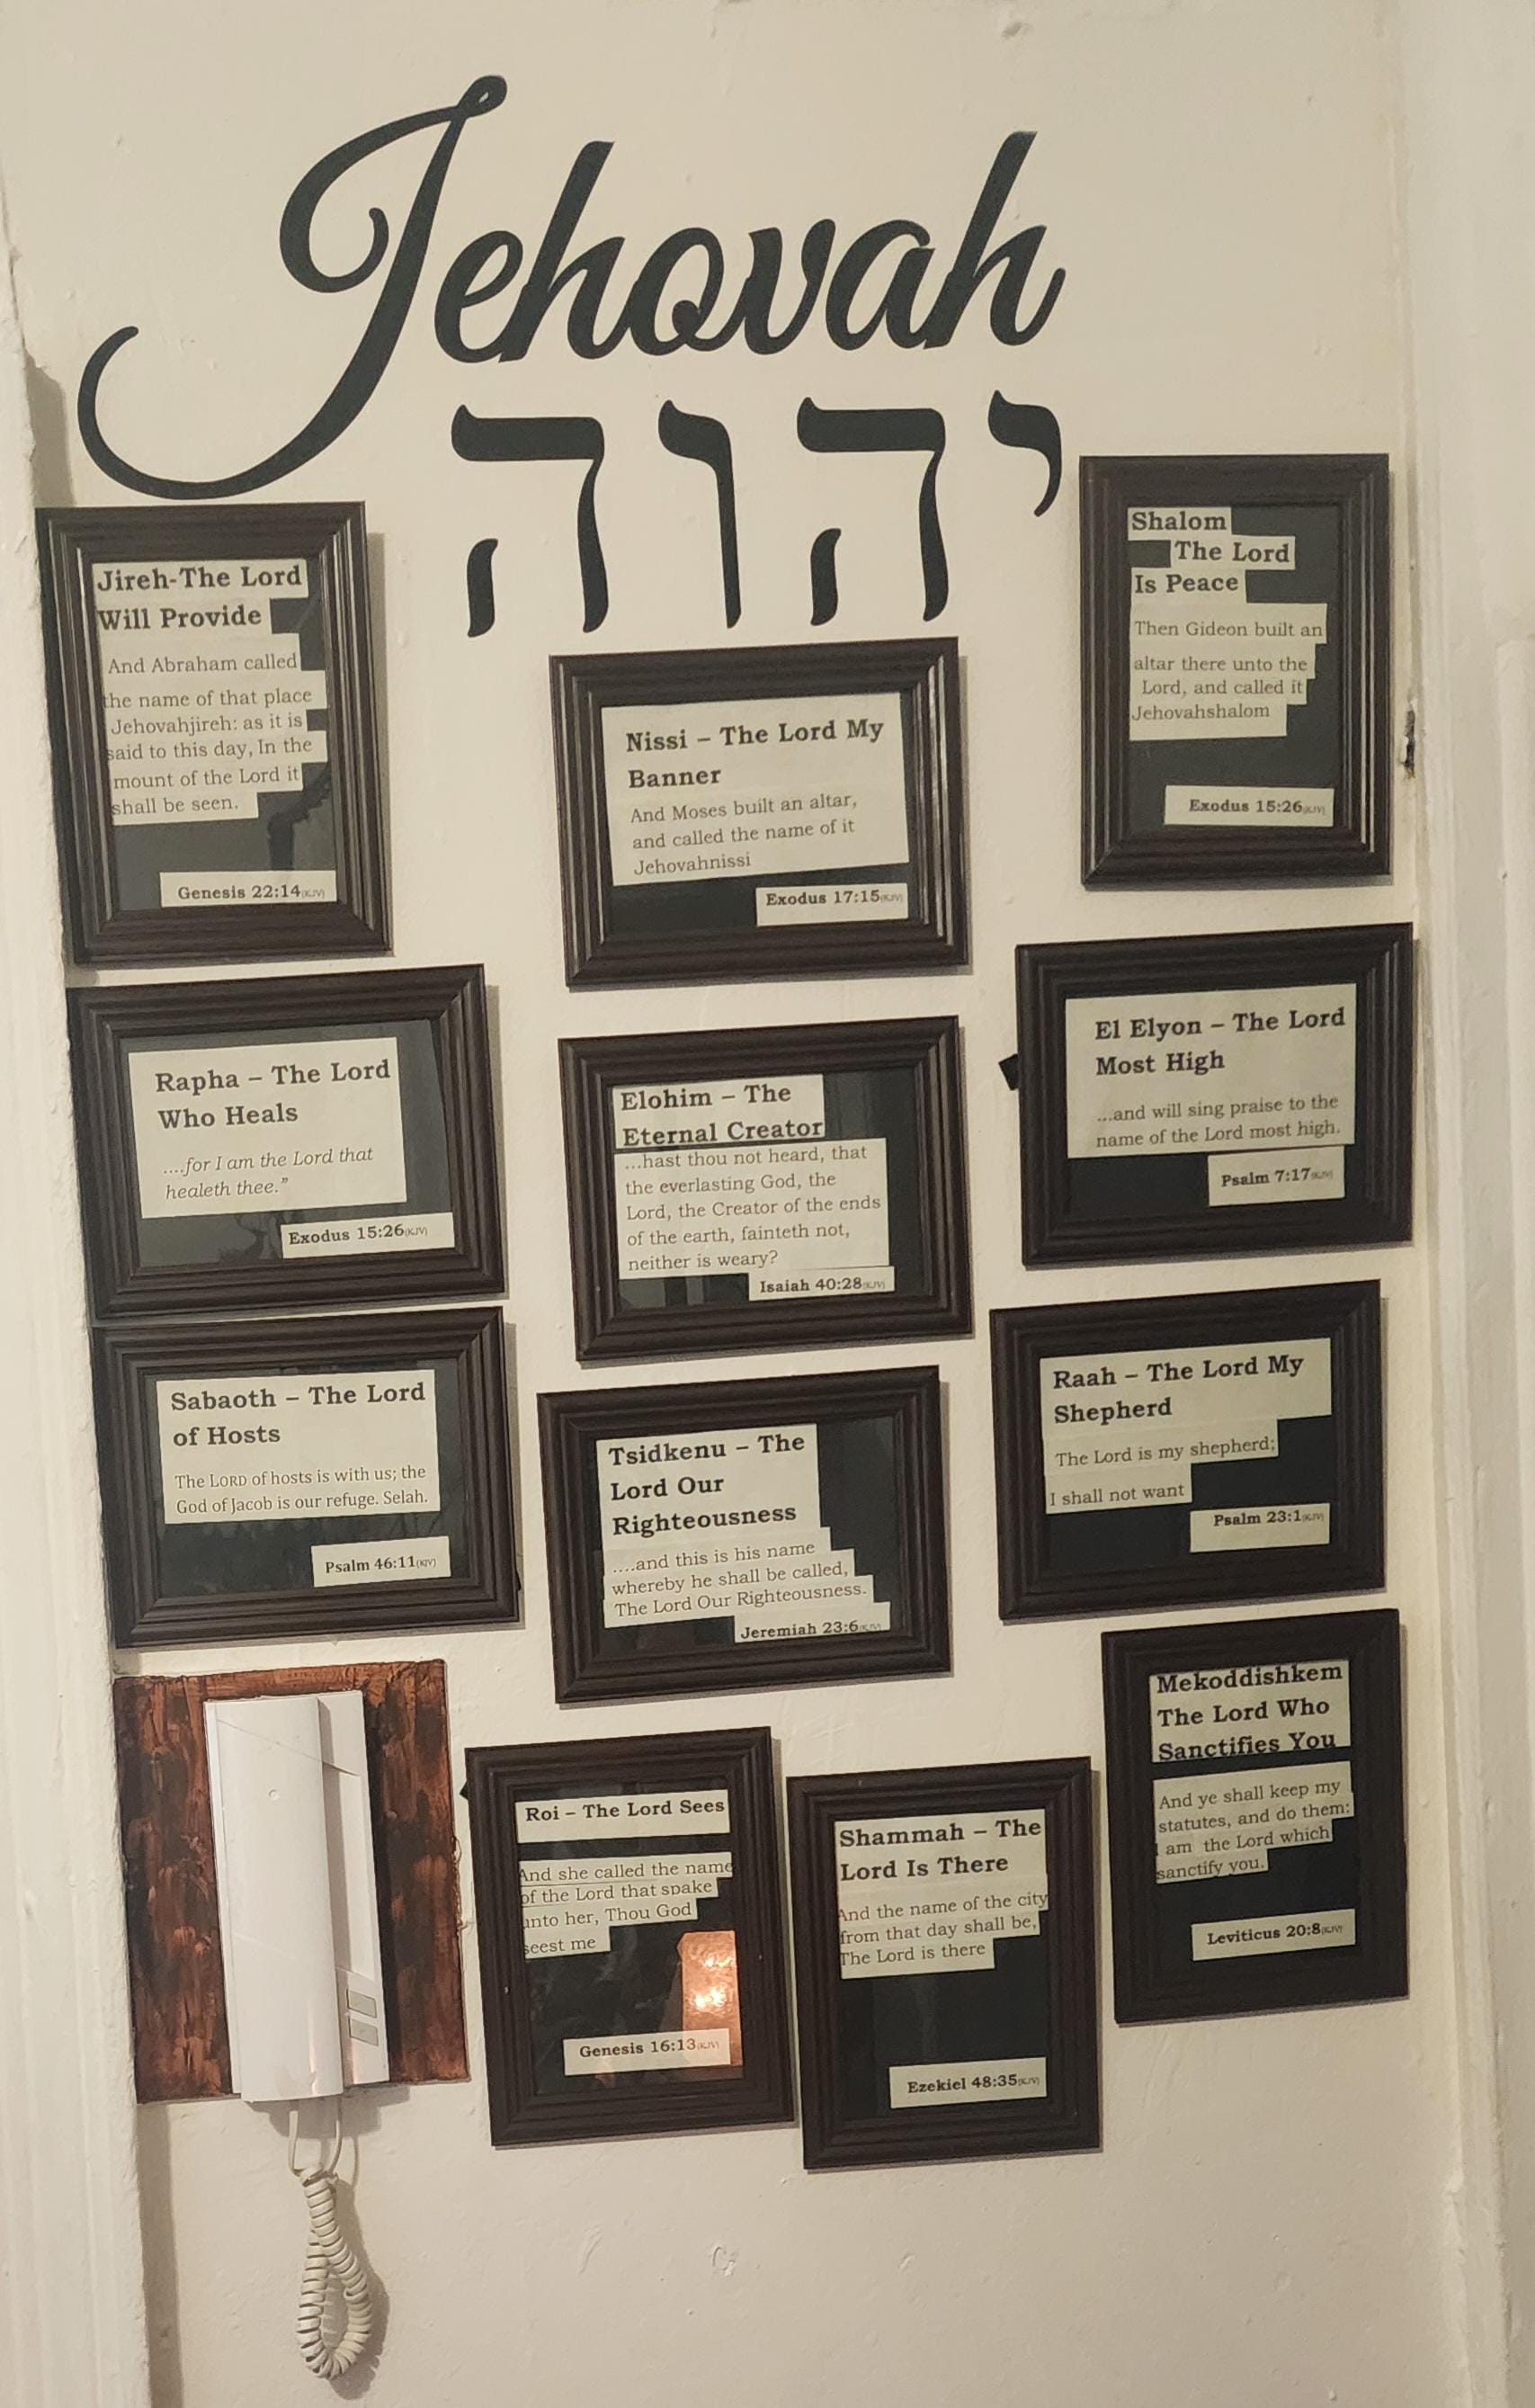 Jehovah
יהוה
Jireh-The Lord
Will Provide
And Abraham called
the name of that place
Jehovahjireh: as it is
said to this day, In the
mount of the Lord it
shall be seen.
Genesis 22:14(KJV)
Nissi – The Lord My
Banner
And Moses built an altar,
and called the name of it
Jehovahnissi
Exodus 17:15(KJV)
Shalom
The Lord
Is Peace
Then Gideon built an
altar there unto the
Lord, and called it
Jehovahshalom
Exodus 15:26(KJV)
Rapha – The Lord
Who Heals
....for I am the Lord that
healeth thee.”
Exodus 15:26(KJV)
Elohim – The
Eternal Creator
...hast thou not heard, that
the everlasting God, the
Lord, the Creator of the ends
of the earth, fainteth not,
neither is weary?
Isaiah 40:28(KJV)
El Elyon – The Lord
Most High
...and will sing praise to the
name of the Lord most high.
Psalm 7:17(KJV)
Sabaoth – The Lord
of Hosts
The LORD of hosts is with us; the
God of Jacob is our refuge. Selah.
Psalm 46:11(KJV)
Tsidkenu – The
Lord Our
Righteousness
....and this is his name
whereby he shall be called,
The Lord Our Righteousness.
Jeremiah 23:6(KJV)
Raah – The Lord My
Shepherd
The Lord is my shepherd;
I shall not want
Psalm 23:1(KJV)
Roi – The Lord Sees
And she called the name
of the Lord that spake
unto her, Thou God
seest me
Genesis 16:13(KJV)
Shammah – The
Lord Is There
And the name of the city
from that day shall be,
The Lord is there
Ezekiel 48:35(KJV)
Mekoddishkem
The Lord Who
Sanctifies You
And ye shall keep my
statutes, and do them:
I am the Lord which
sanctify you.
Leviticus 20:8(KJV)